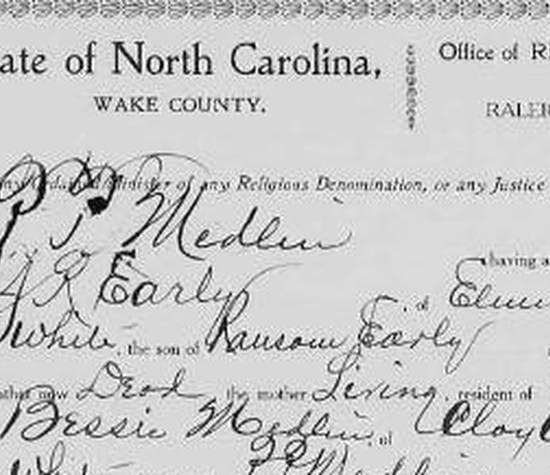 ate of North Carolina,
Office of R
WAKE COUNTY.
RALEI
any Ordained Minister of any Religious Denomination, or any Justice
Medlin
having a
Early of
White, the son of Ransom Early
ather now Dead, the mother Living, resident of
Bessie Medlin, of
Medlin